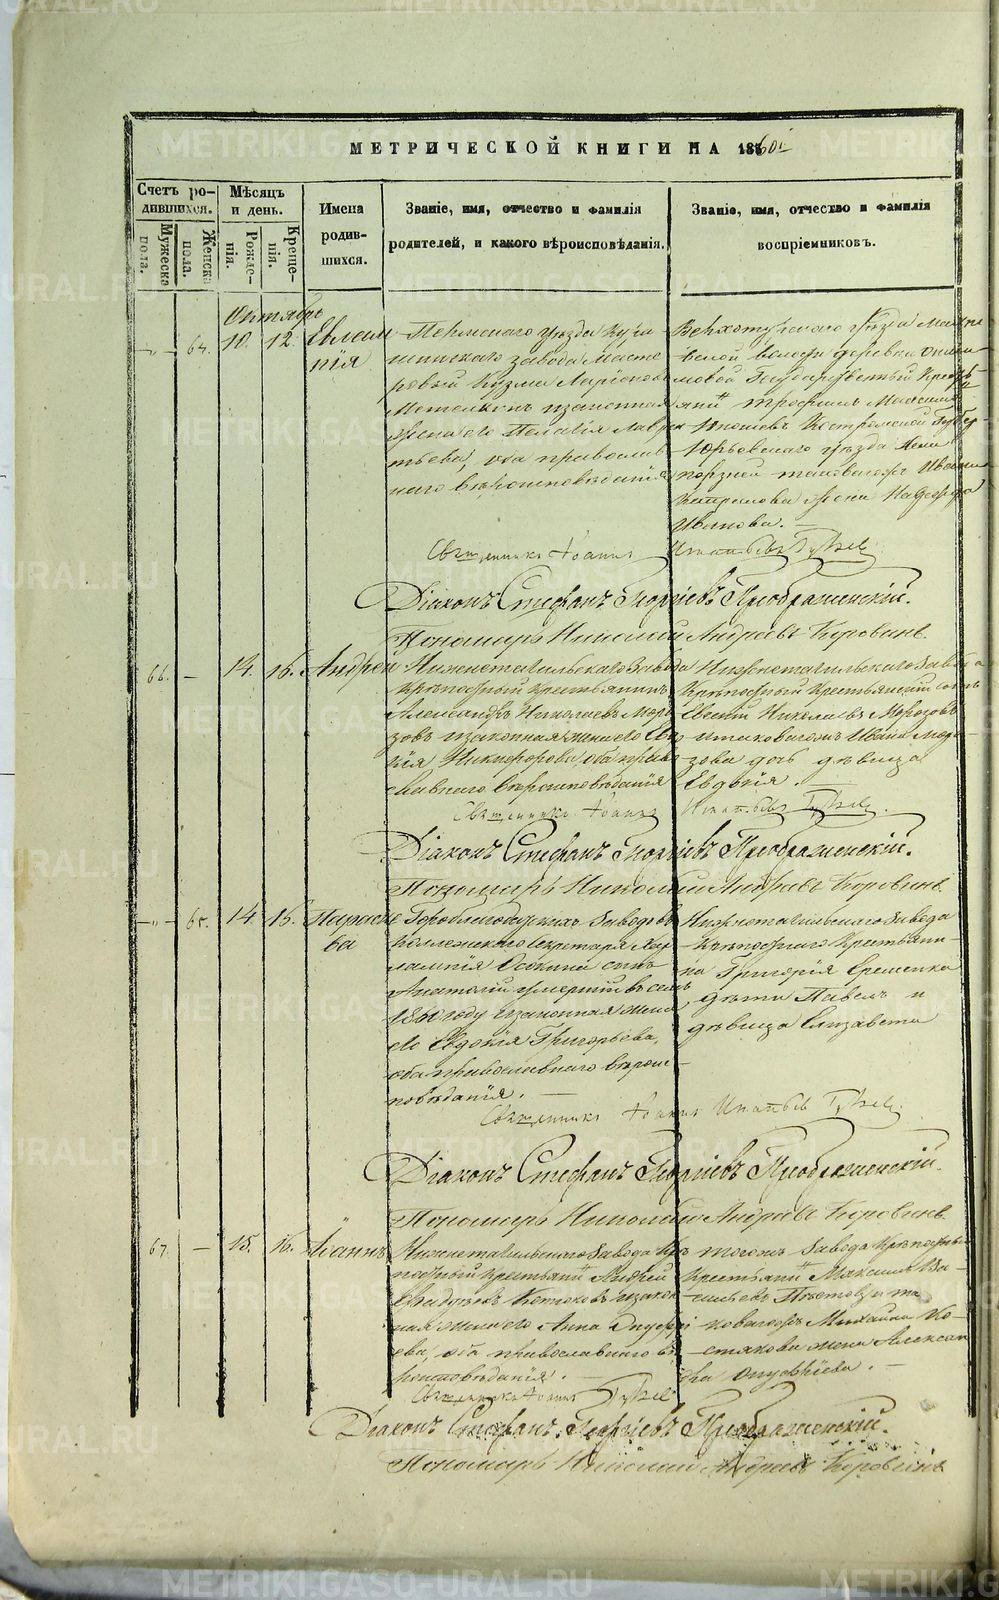 МЕТРИЧЕСКОЙ КНИГИ НА 1860й
Счетъ ро-
дившихся.
Мужеска
пола.
Женска
пола.
Мѣсяцъ
и день.
Рожде-
нія.
Креще-
нія.
Имена
родив-
шихся.
Званіе, имя, отчество и фамилія
родителей, и какого вѣроисповѣданія.
Званіе, имя, отчество и фамилія
воспріемниковъ.
Октябрь
64. 10. 12.
Евлам
пія
Пермскаго уѣзда
шинскаго завода Масте
ровый Кузма Ларіоновъ
и законная
жена его Пелагія Лавре
тьева, оба православ
наго вѣроисповѣданія
Верхотурскаго уѣзда
волости деревни
Государственный Кресть
янинъ Трофимъ
Костромской Губер
Юрьевскаго уѣзда
Ивана
жена Надежда
Иванова.
Священникъ Іоаннъ Игнатьевъ
Діаконъ Стефанъ Георгіевъ Преображенскій.
Пономарь Николай Андреевъ Коровинъ.
66. 14. 16. Андрей
Нижнетагильскаго Завода
Крѣпостный крестьянинъ
Александръ Николаевъ Моро
зовъ и законная жена его Ев
Никифорова, оба право
славнаго вѣроисповѣданія
Нижнетагильскаго Завода
Крѣпостный Крестьянскій сынъ
Евгеній Николаевъ Морозовъ
и таковагожъ Ивана Моро
зова дочь дѣвица
Евдокія.
Священникъ Іоаннъ Игнатьевъ
Діаконъ Стефанъ Георгіевъ Преображенскій.
Пономарь Николай Андреевъ Коровинъ.
65. 14. 15.
Параске
ва
Гороблагодатскихъ Заводовъ
Коллежскаго Секретаря Хар
лампія Осокина сынъ
Анатолій умершій въ семъ
1860 году и законная жена
его Евдокія Григорьева,
оба православнаго вѣрои-
повѣданія.
Нижнетагильскаго Завода
Крѣпостнаго Крестьяни-
на Григорія Еременка
дѣти Павелъ и
дѣвица Елизавета
Священникъ Іоаннъ Игнатьевъ
Діаконъ Стефанъ Георгіевъ Преображенскій.
Пономарь Николай Андреевъ Коровинъ.
67. 15. 16. Іоаннъ
Нижнетагильскаго Завода Крѣ
постный крестьянинъ Андрей
и закон
ная жена его Анна Онуфрі
ева, оба православнаго вѣ-
роисповѣданія.
тогожъ Завода Крѣпостный
Крестьянинъ Максимъ Ва-
сильевъ и та
ковагожъ Михаила Ко-
стякова жена Алексан
дра Онуфріева.
Священникъ Іоаннъ
Діаконъ Стефанъ Георгіевъ Преображенскій.
Пономарь Николай Андреевъ Коровинъ
METRIKI.GASO-URAL.RU